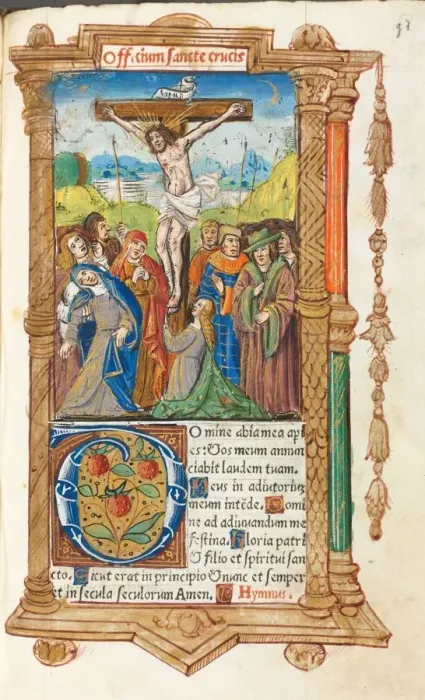 Officium sancte crucis
97
Omine labia mea apri
es: Et os meum annun
ciabit laudem tuam.
Deus in adiutoriũ
meum intẽde. Domi
ne ad adiuuandum me
festina. Gloria patri
et filio et spiritui san
cto. Sicut erat in principio et nunc et semper
et in secula seculorum Amen. Hymnus.